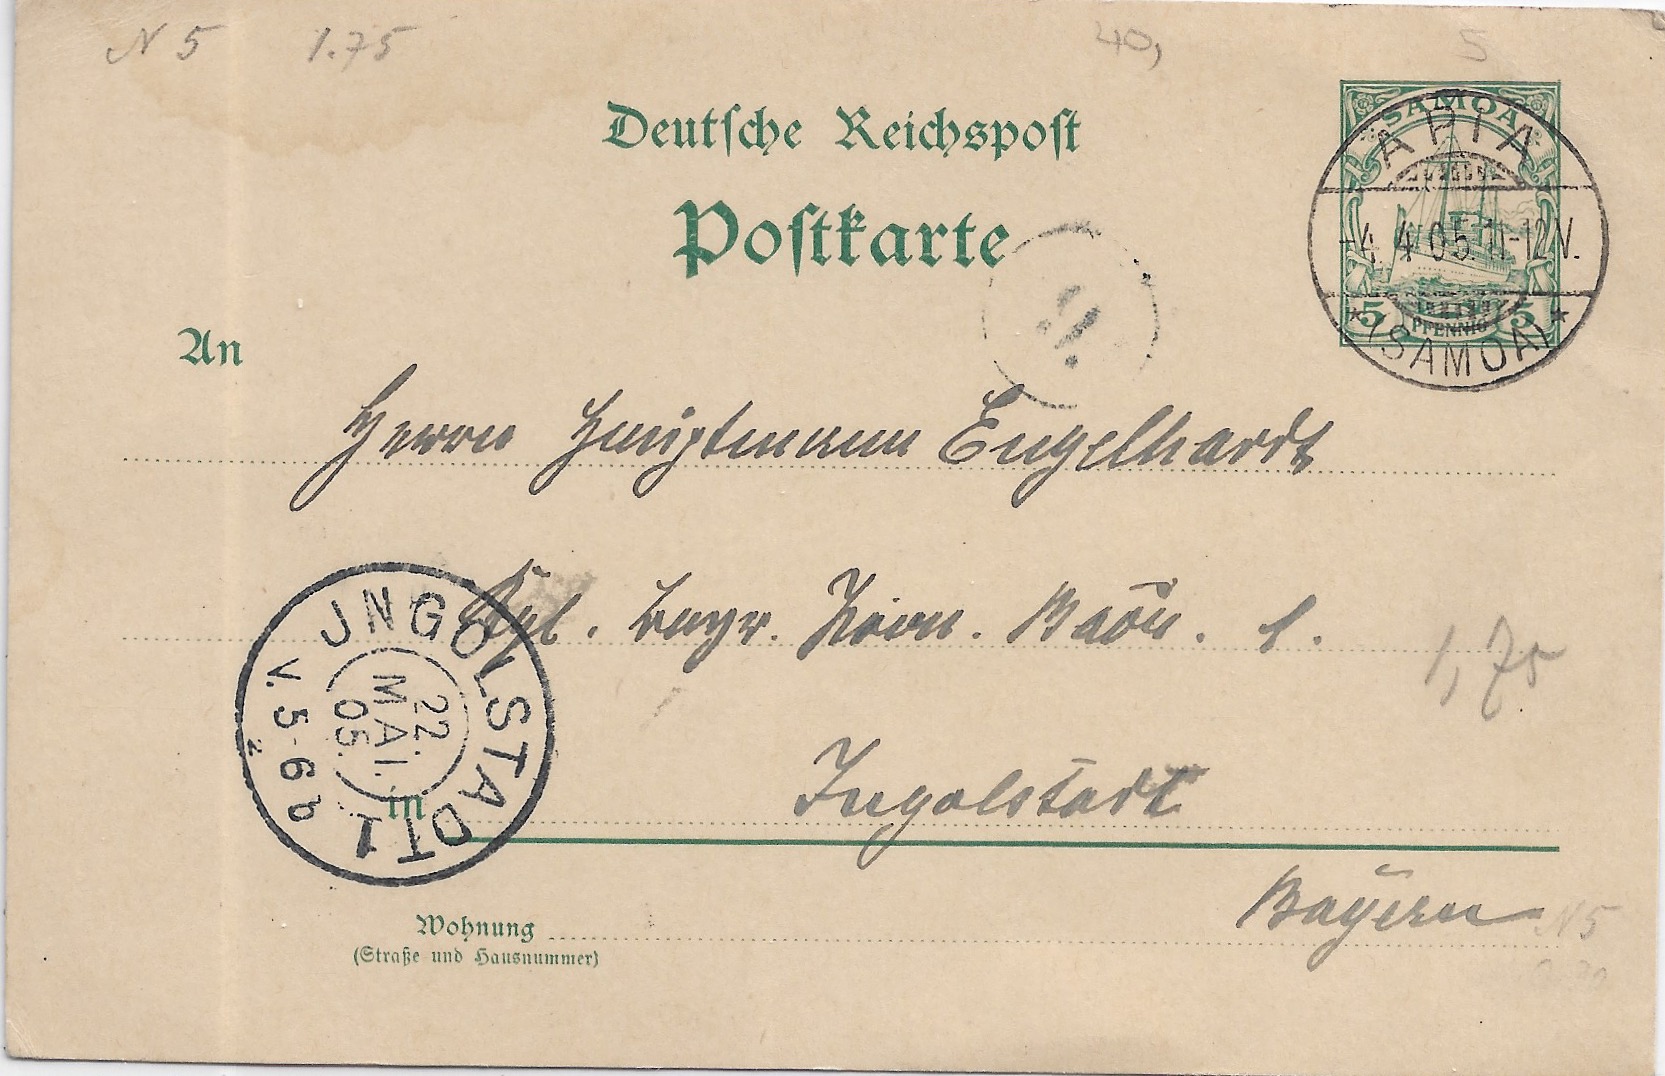 N 5 1.75 40, 5
Deutsche Reichspost
Postkarte
SAMOA
5 PFENNIG 5
APIA
-4.4.05.11-12V.
* (SAMOA) *
11.
An
Herrn Hauptmann Engelhardt
Kgl. bayr. Pion. Baon. 1.
1,75
JNGOLSTADT 1
22.
MAI.
05.
V. 5-6 b
2
in Ingolstadt
Bayern
N 5
Wohnung
(Straße und Hausnummer)